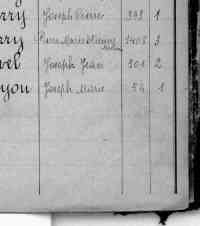 rry Joseph Pierre 393 1
rry Pierre Marie 1403 3
vel Joseph Jean 301 2
yon Joseph Marie 54 1